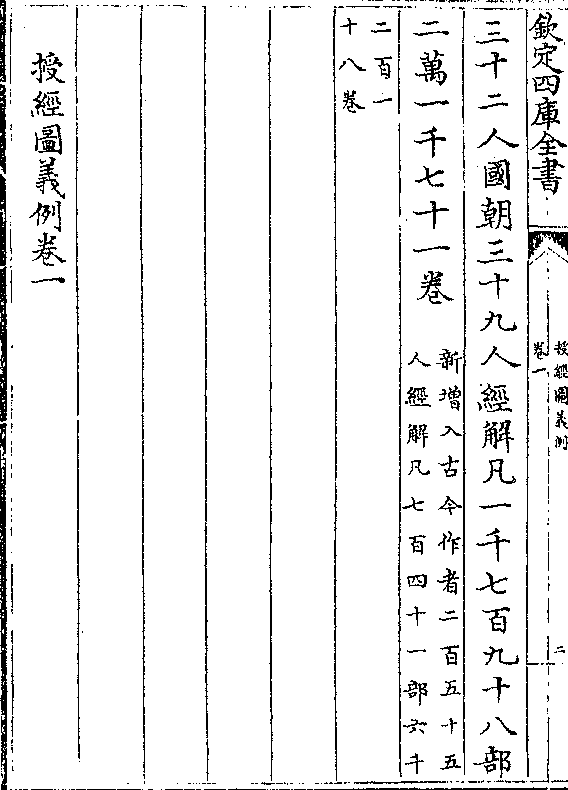 欽定四庫全書
授經圖義例
卷一
二
三十二人國朝三十九人經解凡一千七百九十八部
二萬一千七十一卷
新增入古今作者二百五十五
人經解凡七百四十一部六千
二百一
十八卷
授經圖義例卷一